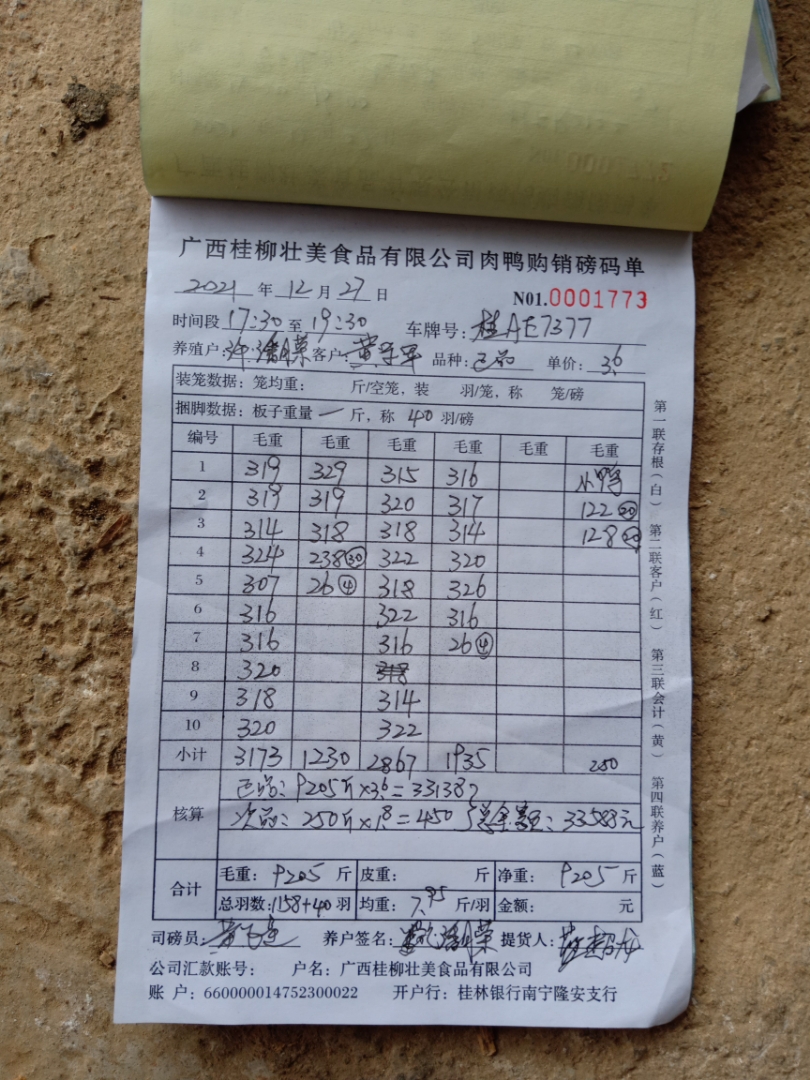 广西桂柳壮美食品有限公司肉鸭购销磅码单
2021 年 12 月 27 日 N01.0001773
时间段 17:30 至 19:30 车牌号: 桂AE7377
养殖户: 客户: 品种: 正品 单价: 3.6
装笼数据: 笼均重: 斤/空笼, 装 羽/笼, 称 笼/磅
捆脚数据: 板子重量 一 斤, 称 40 羽/磅
编号 毛重 毛重 毛重 毛重 毛重 毛重
1 319 329 315 316 小鸭
2 319 319 320 317 122 20
3 314 318 318 314 128 20
4 324 238 30 322 320
5 307 26 4 318 326
6 316 322 316
7 316 316 26 4
8 320
9 318 314
10 320 322
小计 3173 1230 2867 1935 250
核算 正品: 9205斤×3.6=33138
次品: 250斤×1.8=450 总金额: 33588元
合计 毛重: 9205 斤 皮重: 斤 净重: 9205 斤
总羽数: 1158+40 羽 均重: 7.95 斤/羽 金额: 元
司磅员: 养户签名: 提货人:
公司汇款账号: 户名: 广西桂柳壮美食品有限公司
账 户: 660000014752300022 开户行: 桂林银行南宁隆安支行
第一联存根(白) 第二联客户(红) 第三联会计(黄) 第四联养户(蓝)